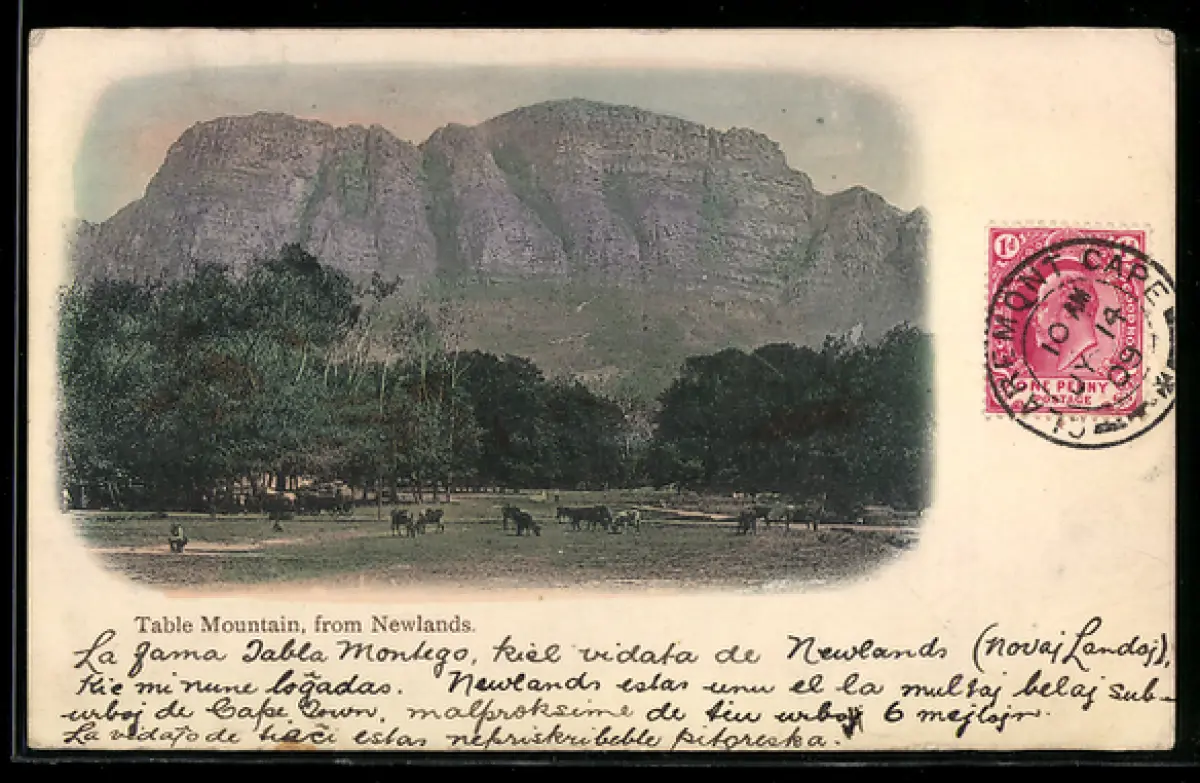 1d
CLAREMONT CAPE
10 AM
JY 14
09
ONE PENNY
POSTAGE
Table Mountain, from Newlands.
La fama Tabla Montego, kiel vidata de Newlands (Novaj Landoj),
kie mi nune loĝadas. Newlands estas unu el la multaj belaj sub-
urboj de Cape Town, malproksime de tiu urboj 6 mejlojn.
La vidajo de tie ĉi estas nepriskribeble pitoreska.